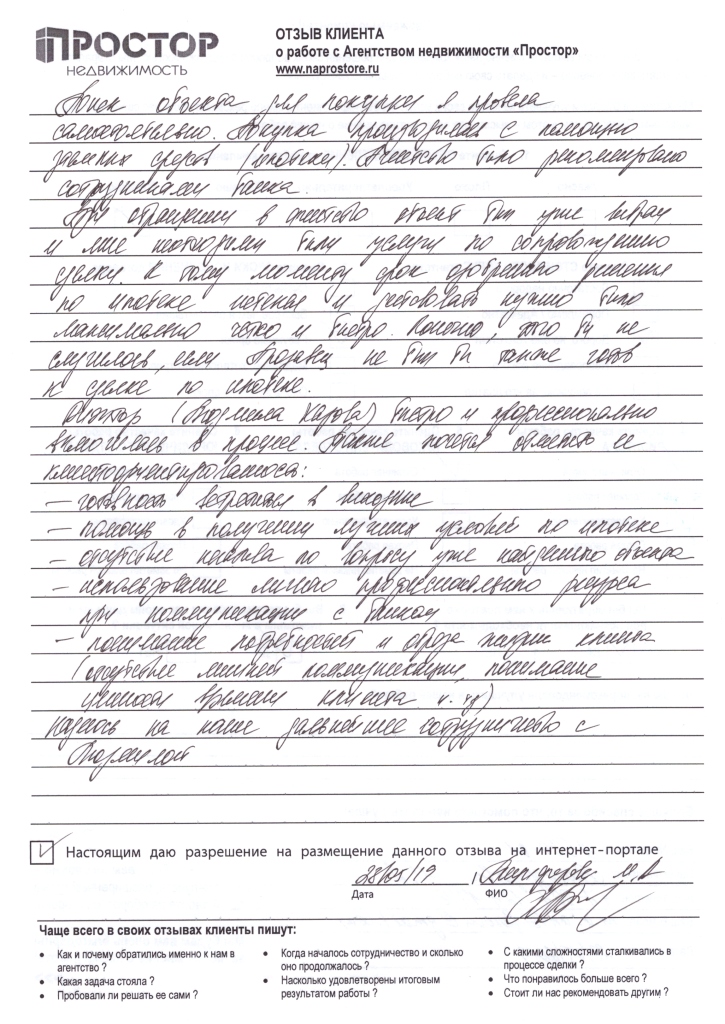 ПРОСТОР
НЕДВИЖИМОСТЬ
ОТЗЫВ КЛИЕНТА
о работе с Агентством недвижимости «Простор»
www.naprostore.ru
Поиск объекта для покупки я провела
самостоятельно. Покупка производилась с помощью
заемных средств (ипотеки). Агентство было рекомендовано
сотрудниками банка.
При обращении в агентство объект был уже выбран
и мне необходимы были услуги по сопровождению
сделки. К тому моменту срок одобренного решения
по ипотеке истекал и действовать нужно было
максимально четко и быстро. Конечно, этого бы не
случилось, если Продавец не был бы также готов
к сделке по ипотеке.
Риэлтор (Людмила) быстро и профессионально
включилась в процесс. Также хочется отметить ее
клиентоориентированность:
— готовность встретиться в выходные
— помощь в получении лучших условий по ипотеке
— отсутствие по вопросу уже найденного объекта
— использование личного профессионального ресурса
при коммуникации с банком
— понимание потребностей и образа жизни клиента
(отсутствие лишней коммуникации, понимание
ценности времени клиента и. тд)
Надеюсь на наше дальнейшее сотрудничество с
Людмилой
Настоящим даю разрешение на размещение данного отзыва на интернет-портале
28/05/19 / М. А
Дата ФИО
Чаще всего в своих отзывах клиенты пишут:
• Как и почему обратились именно к нам в агентство ?
• Какая задача стояла ?
• Пробовали ли решать ее сами ?
• Когда началось сотрудничество и сколько оно продолжалось ?
• Насколько удовлетворены итоговым результатом работы ?
• С какими сложностями сталкивались в процессе сделки ?
• Что понравилось больше всего ?
• Стоит ли нас рекомендовать другим ?